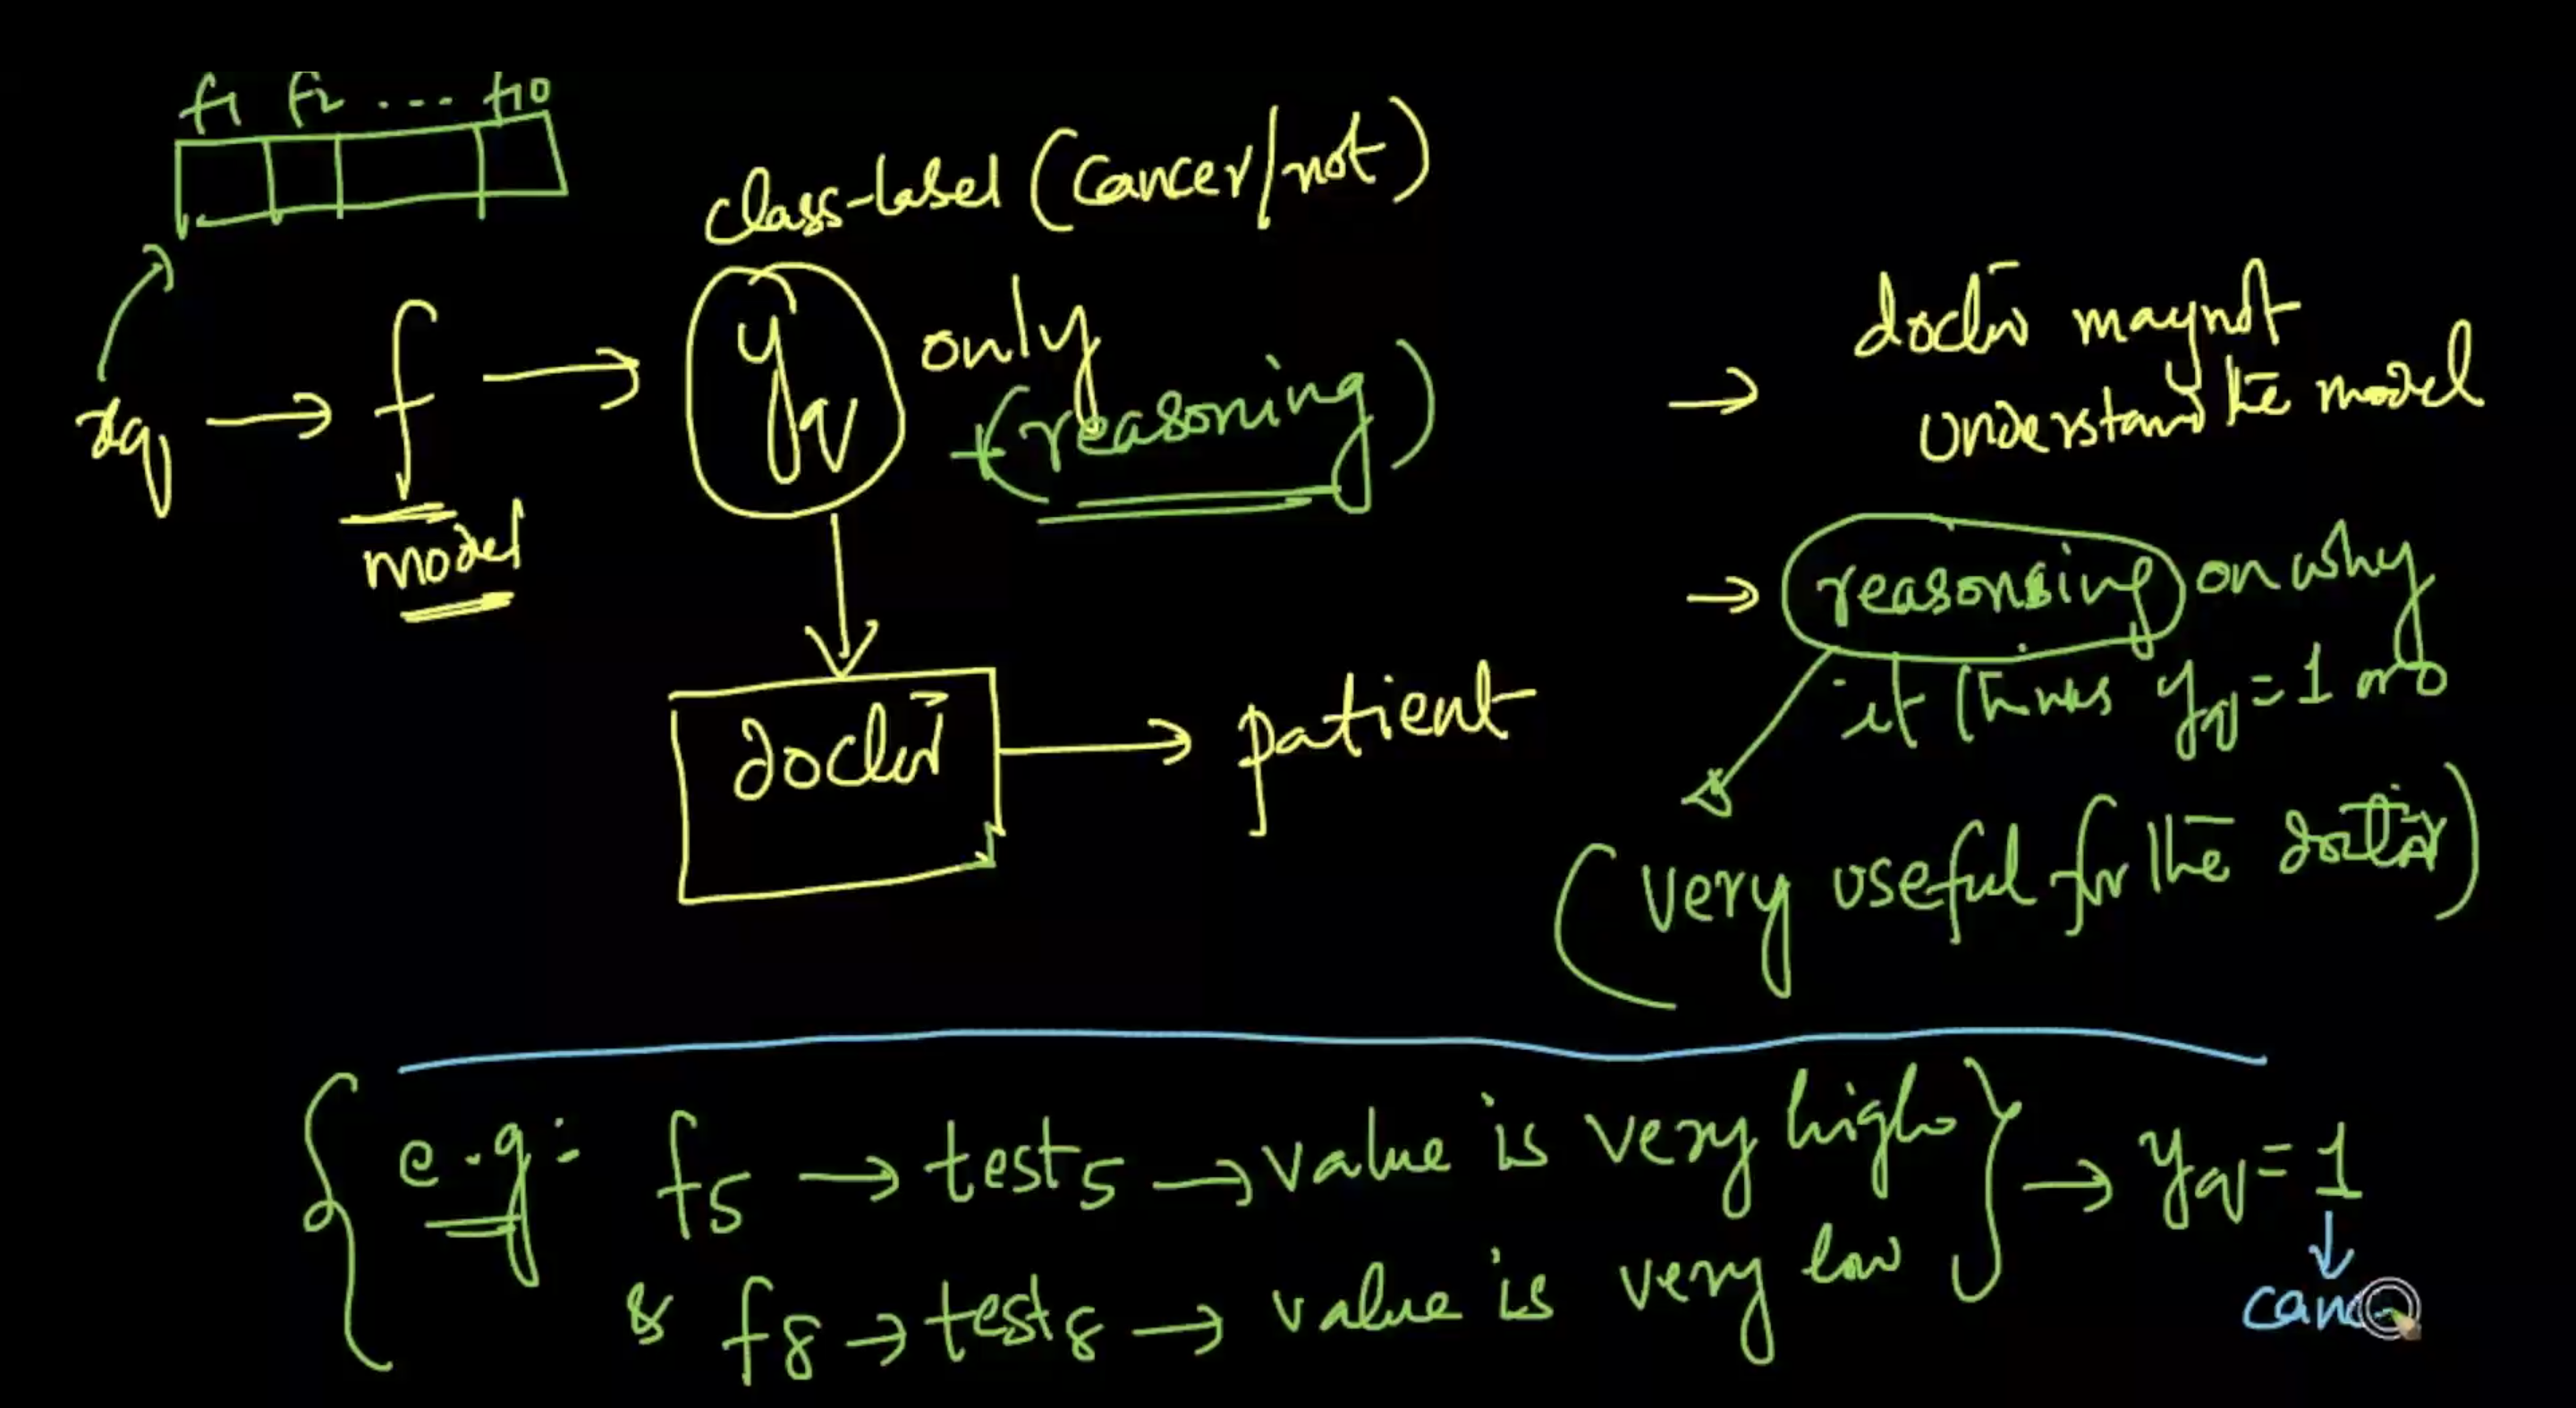 f1 f2 .... f10
class-label (cancer/not)
xq → f → yq only
+(reasoning)
model
→ doctor maynot
understand the model
→ reasonsing on why
it thinks yq=1 or 0
(very useful for the doctor)
doctor → patient
e.g: f5 → test5 → value is very high
& f8 → test8 → value is very low
→ yq=1
canc